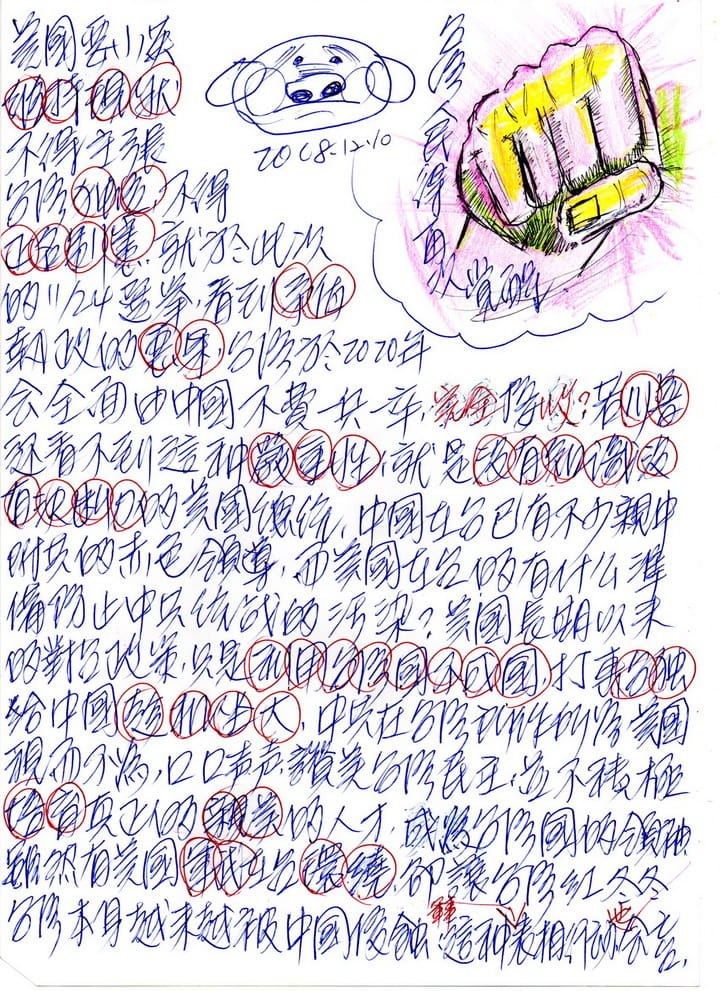 美國要小英
維持現狀
不得主張
台灣獨立,不得
正名制憲,就於此次
的11/24選舉,看到
朝政的惡果,台灣於2020年
會全面由中國不費一兵一卒,完全接收?若川普
還看不到這種嚴重性,就是沒有知識沒
有判斷力的美國總統,中國在台已有不少親中
附共的赤色領導,而美國在台的有什么準
備防止中共統战的污染?美國長期以来
的對台政策,只是利用台灣國不成國,打壓台独
給中國趁机坐大,中共在台灣所作所為美國
視而不為,口口声声讚美台灣民主,並不積極
培育真正的親美的人才,成為台灣國的領袖
雖然有美國軍武在台環繞,卻讓台灣紅冬冬
台灣本身越来越被中國侵蝕,這種表相行动
台灣人民得再次覚醒
2018-12-10